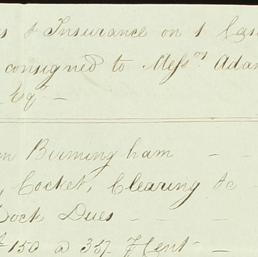 & Insurance on 1 Cas
consigned to Messrs Adam
Esq —
m Birmingham — —
, Cocket, Clearing &c —
Dock Dues — —
£150 @ 35/ ⅌ Cent —